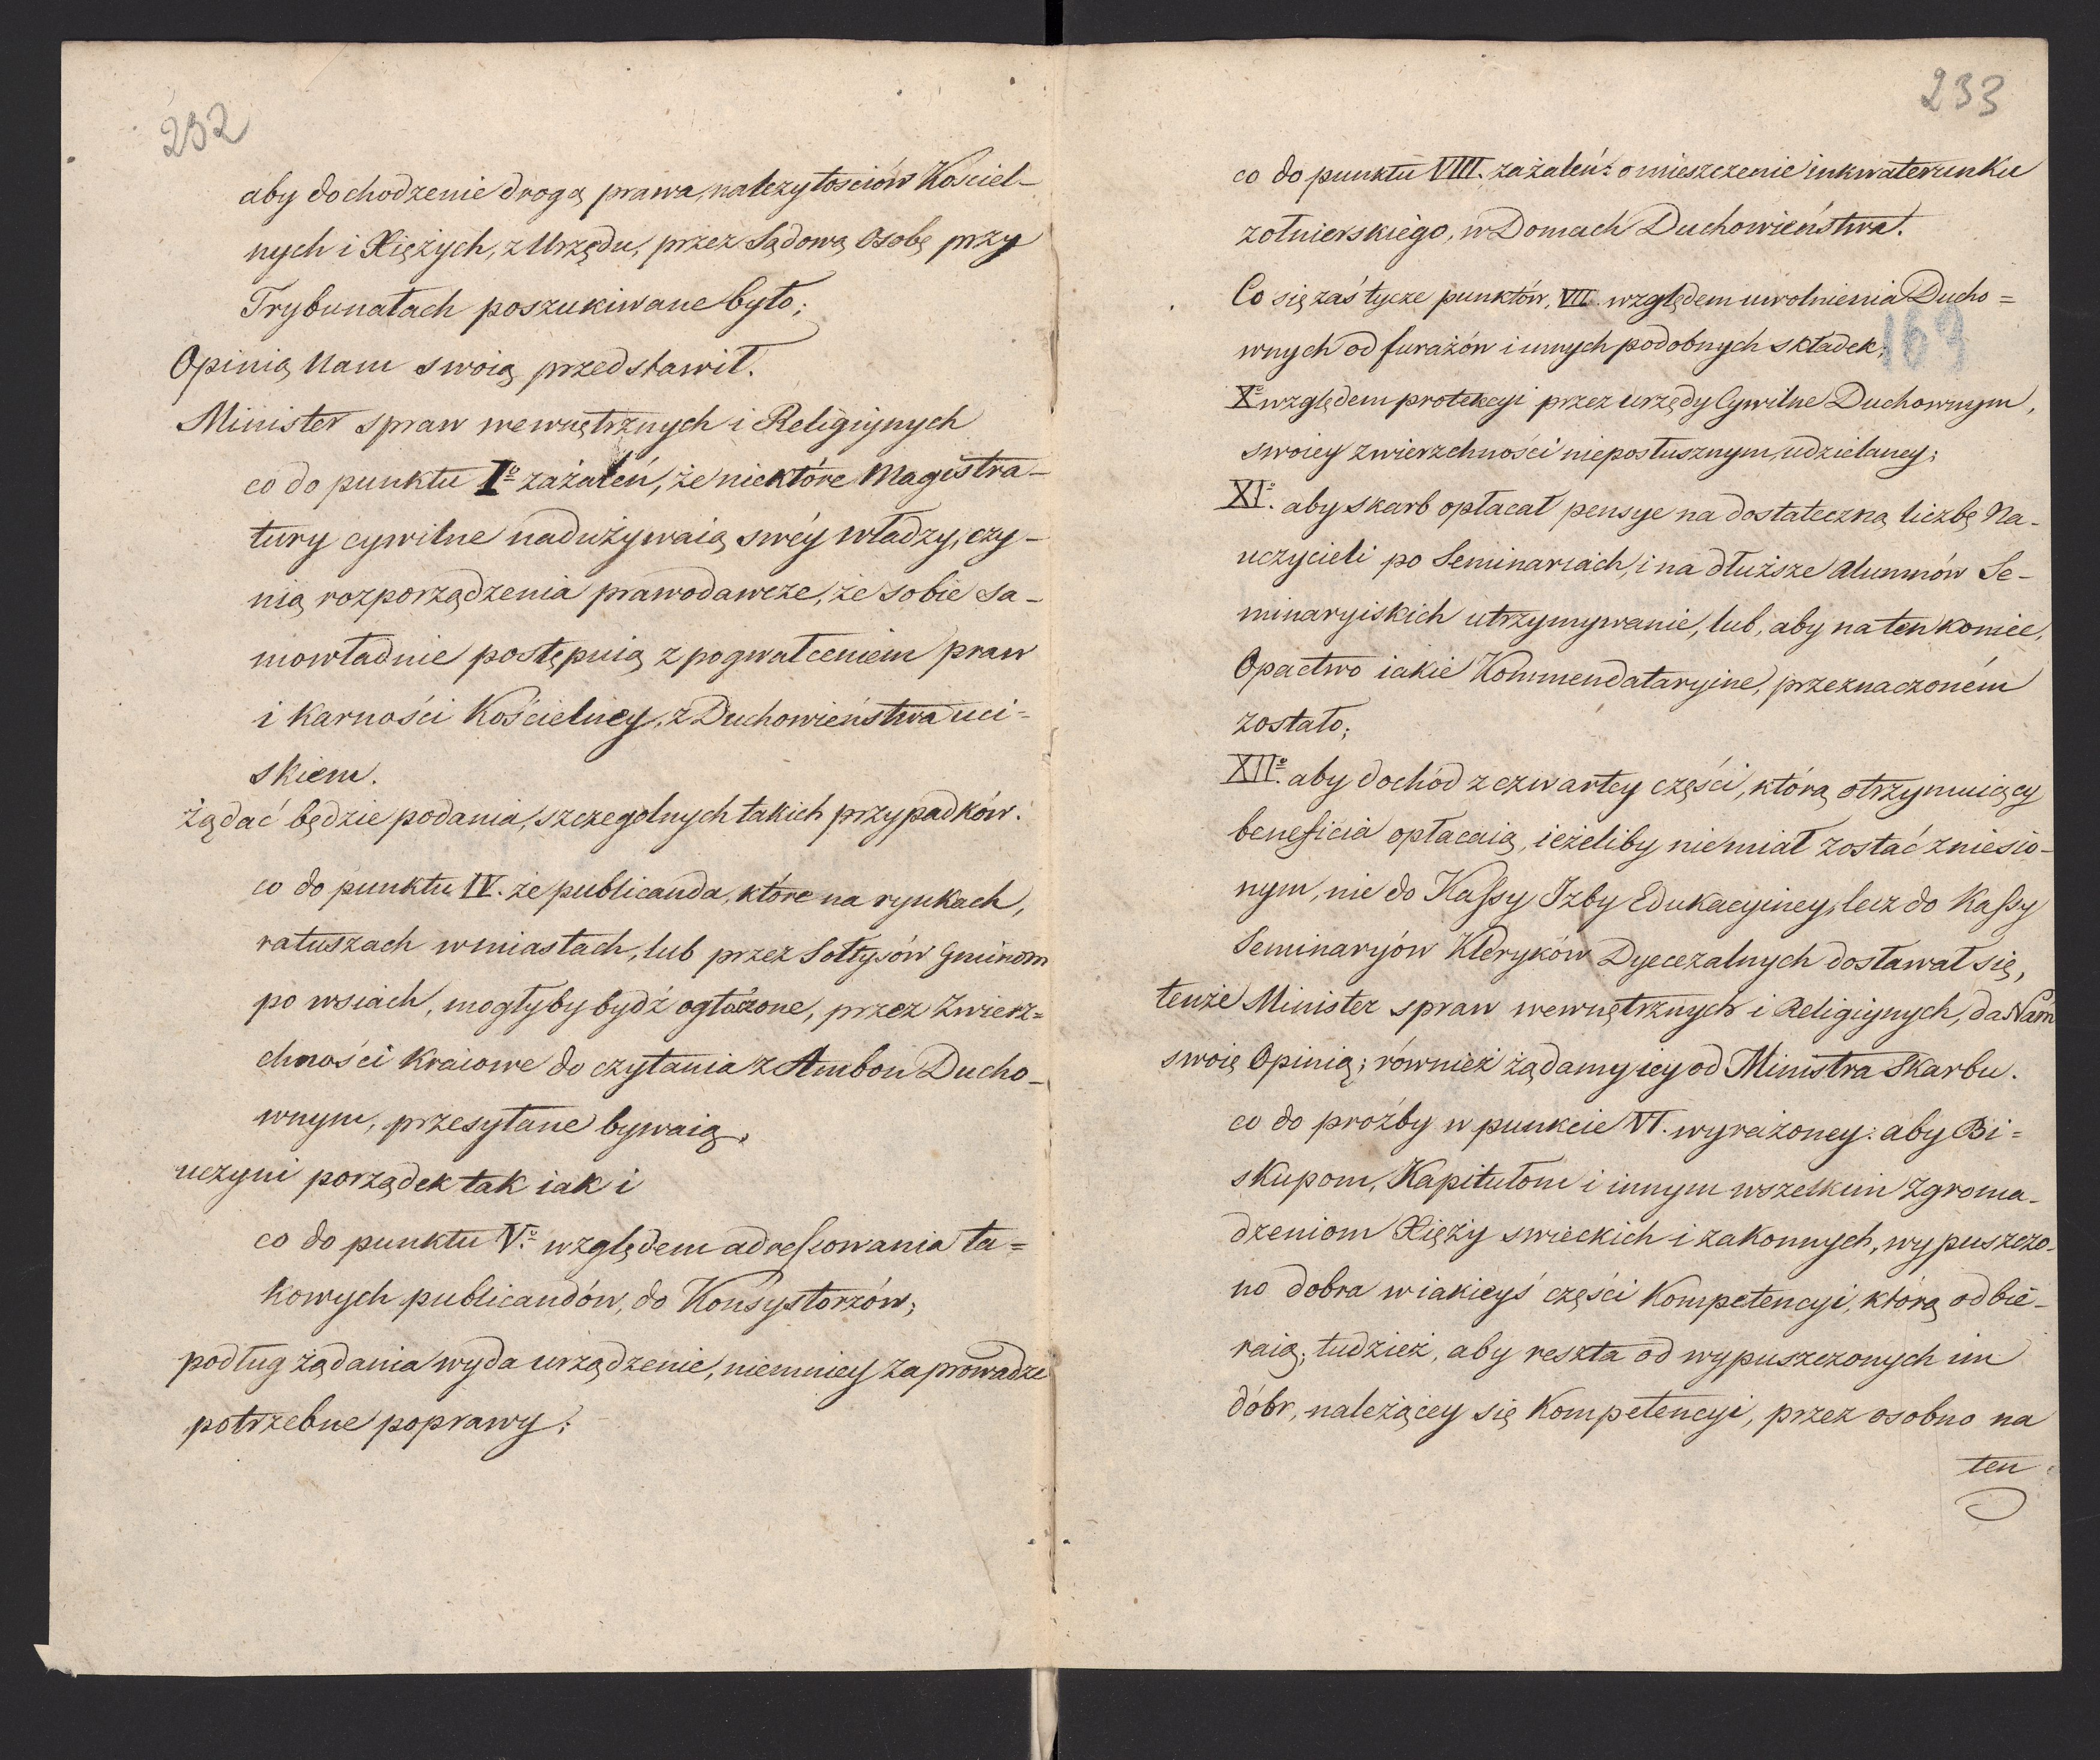 232
aby dochodzenie drogą prawa, należytościów Kościel-
nych i Xiężych, z Urzędu, przez Sądową Osobę przy
Trybunałach poszukiwane było;
Opinią Nam swoią przedstawił.
Minister spraw wewnętrznych i Religiynych
co do punktu Iº zażaleń, że niektóre Magistra-
tury cywilne nadużywaią swéy władzy, czy-
nią rozporządzenia prawodawcze, że sobie sa-
mowładnie postępuią z pogwałceniem praw
i Karności Kościelney, z Duchowieństwa uci=
skiem.
żądać będzie podania, szczegolnych takich przypadków.
co do punktu IV. że publicanda, które na rynkach,
ratuszach w miastach, lub przez Sołtysów Gminom
po wsiach, mogłyby bydź ogłoszone, przez Zwierz=
chności Kraiowe do czytania z Ambon Ducho-
wnym, przesyłane bywaią,
uczyni porządek tak iak i
co do punktu Vº względem adressowania ta=
kowych publicandów, do Konsystorzów;
podług żądania wyda urządzenie, niemniey zaprowadzi
potrzebne poprawy;
233
co do punktu VIII. zażaleń: o mieszczenie inkwaterunku
żołnierskiego, w Domach Duchowieństwa.
Co się zaś tycze punktów, VII. względem uwolnienia Ducho=
wnych od furażów i innych podobnych składek;
163
Xº względem protekcyi przez urzędy Cywilne Duchownym,
swoiey zwierzchności nieposłusznym, udzielaney;
XIº. aby skarb opłacał pensye na dostateczną liczbę Na-
uczycieli po Seminariach, i na dłuższe Alumnów Se-
minaryiskich utrzymywanie, lub, aby na ten koniec,
Opactwo iakie Kommendataryine, przeznaczoném
zostało;
XIIº. aby dochód z czwartey części, którą otrzymuiący
beneficia opłacaią, ieżeliby niemiał zostać zniesio-
nym, nie do Kassy Izby Edukacyiney, lecz do Kassy
Seminaryów Kleryków Dyecezalnych dostawał się,
tenże Minister spraw wewnętrznych i Religiynych, da Nam
swoię Opinią; również żądamy iey od Ministra Skarbu.
co do prożby w punkcie VI. wyrażoney: aby Bi=
skupom, Kapitułom i innym wszelkim Zgroma-
dzeniom Xięży swieckich i zakonnych, wypuszczo-
no dobra w iakieyś części Kompetencyi, którą odbie-
raią; tudzież, aby reszta od wypuszczonych im
dóbr, należącey się Kompetencyi, przez osobno na
ten